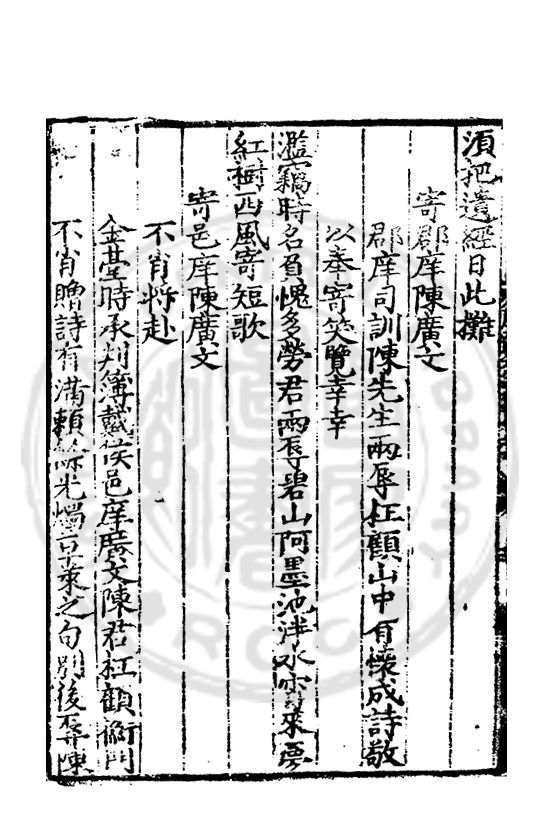 須把遺經日此攤
寄郡庠陳廣文
郡庠司訓陳先生兩辱枉顧山中有懷成詩敬
以奉寄笑覽幸幸
濫竊時名負愧多勞君兩辱碧山阿墨池泮水來夢
紅樹西風寄短歌
寄邑庠陳廣文
不肖將赴
金臺時承判簿戴侯邑庠廣文陳君枉顧衡門
不肖贈詩有滿賴光燭之句別後辱陳